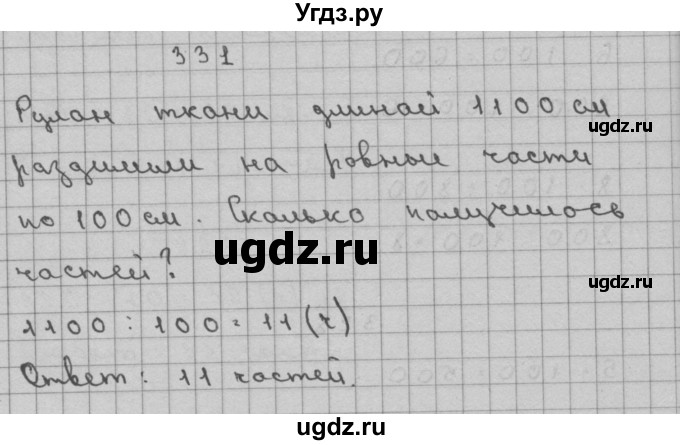 Угдз.ру
331
Рулан ткани длинай 1100 см
ugdz.ru
раздилили на ровные части
по 100 см. Сколько палучилось
ugdz.ru
частей?
ugdz.ru
1100 : 100 = 11 (ч)
Ответ: 11 частей.
ugdz.ru